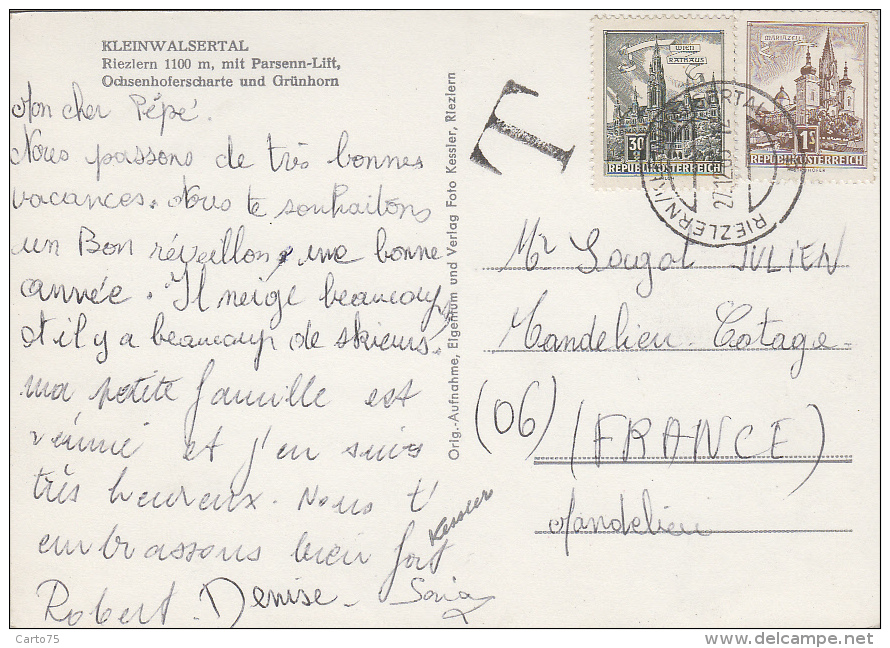 KLEINWALSERTAL
Riezlern 1100 m, mit Parsenn-Lift,
Ochsenhoferscharte und Grünhorn
Mon cher Pépé.
Nous passons de très bonnes
vacances. Nous te souhaitons
un Bon réveillon, une bonne
année. Il neige beaucoup
et il y a beaucoup de skieurs.
ma petite famille est
réunie et j'en suis
très heureux. Nous t'
embrassons bien fort
Robert. Denise - Sonia
Kessler
Orig.-Aufnahme, Eigentum und Verlag Foto Kessler, Riezlern
T
WIEN
RATHAUS
30 g
REPUBLIK ÖSTERREICH
MARIAZELL
1 S
REPUBLIK ÖSTERREICH
RIEZLERN
27.12.
Mr Lougal JULIEN
Mandelieu-Cotage-
(06) (FRANCE)
Mandelieu
Carto75
www.delcampe.net